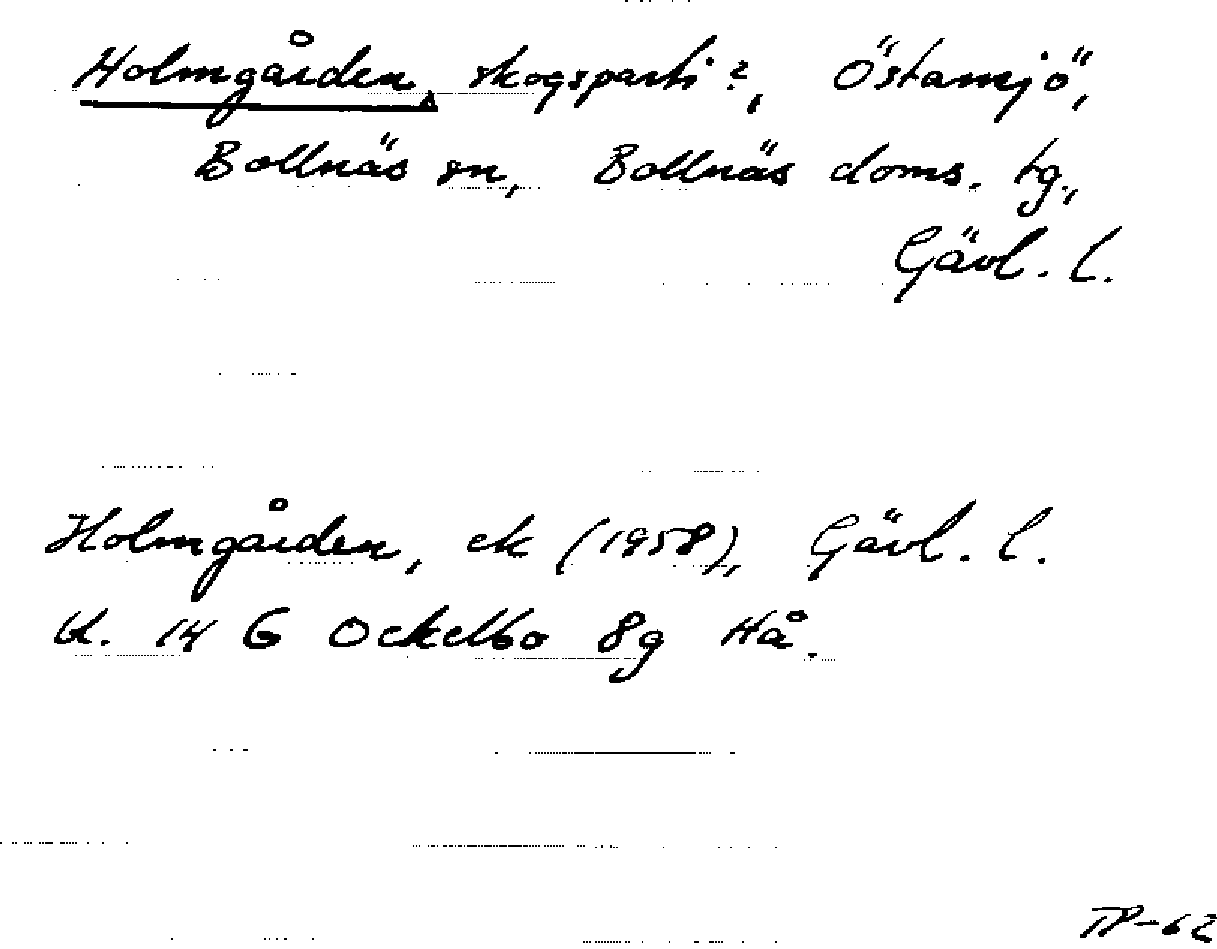 Holmgården, skogsparti?, Östansjö,
Bollnäs sn, Bollnäs doms. tg.,
Gävl. l.
Holmgården, ek (1958), Gävl. l.
bl. 14 G Ockelbo 8g Hå.
TP-62